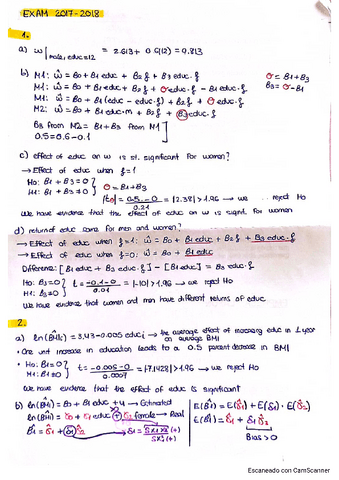 EXAM 2017-2018
1.
a) w | male, educ=12 = 2.613 + 0.6(12) = 9.813
b) M1: ŵ = B0 + B1 educ + B2 f + B3 educ·f
M1: ŵ = B0 + B1 educ + B2 f + θ educ·f - B1 educ·f
θ = B1+B3
B3 = θ-B1
M1: ŵ = B0 + B1 (educ - educ·f) + B2 f + θ educ·f
M2: ŵ = B0 + B1 educ·m + B2 f + B3 educ·f
B3 from M2 = B1+B3 from M1
0.5 = 0.6-0.1
c) effect of educ on w is st. significant for women?
→ Effect of educ when f=1
H0: B1 + B3 = 0
H1: B1 + B3 ≠ 0
θ = B1+B3
|t0| = 0.5-0 / 0.21 = |2.38| > 1.96 → we reject H0
We have evidence that the effect of educ on w is signif. for women
d) return of educ same for men and women?
→ Effect of educ when f=1: ŵ = B0 + B1 educ + B2 f + B3 educ·f
→ Effect of educ when f=0: ŵ = B0 + B1 educ
Difference: [B1 educ + B2 f + B3 educ·f] - [B1 educ] = B3 educ·f
H0: B3=0
H1: B3≠0
t = -0.1-0
we reject H0
We have evidence that women and men have different returns of educ
2.
a) ln(BMI) = 3.43-0.005 educi → the average effect of increasing educ in 1 year on average BMI
• One unit increase in education leads to a 0.5 percent decrease in BMI
• H0: B1=0
H1: B1≠0
t = -0.005-0 / 0.0007 = |7.1428| > 1.96 → we reject H0
We have evidence that the effect of educ is significant
b) ln(BMI) = B0 + B1 educ + u → Estimated
ln(BMI) = δ0 + δ1 educ + δ2 female → Real
Bias > 0
Escaneado con CamScanner